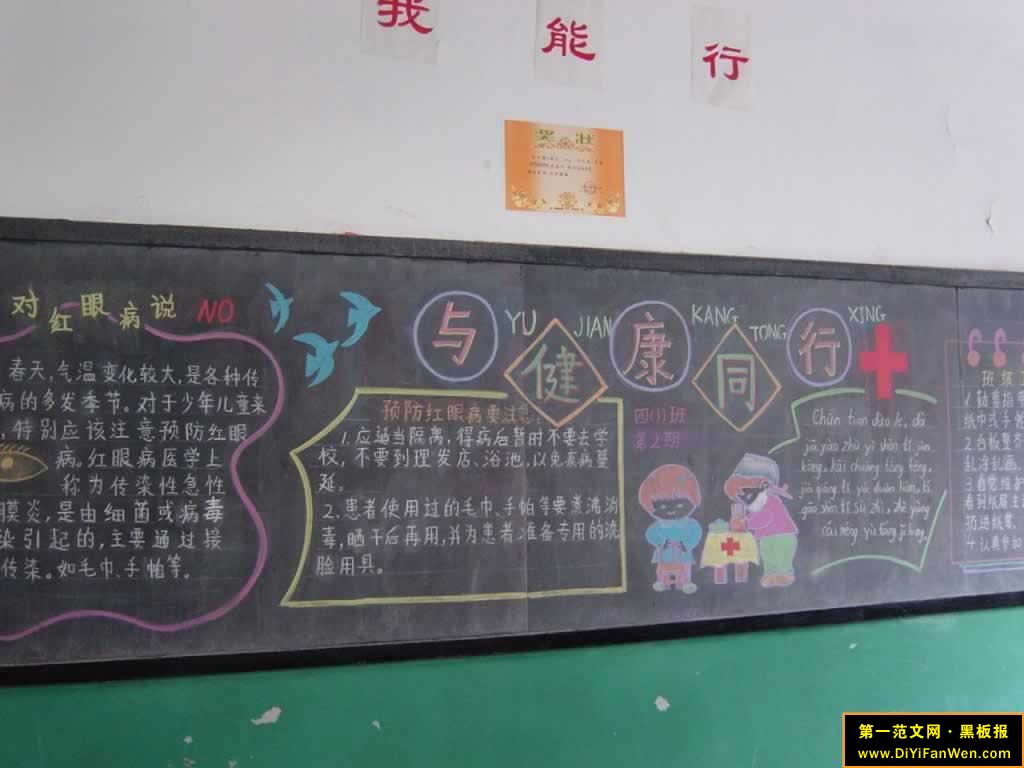 我 能 行
奖 状
对红眼病说 NO
春天,气温变化较大,是各种传
病的多发季节。对于少年儿童来
,特别应该注意预防红眼
病。红眼病医学上
称为传染性急性
膜炎,是由细菌或病毒
染引起的,主要通过接
传染。如毛巾、手帕等。
与健康同行
YU JIAN KANG TONG XING
预防红眼病要注意:
1.应适当隔离,得病后暂时不要去学
校,不要到理发店、浴池,以免疾病蔓
延。
2.患者使用过的毛巾、手帕等要煮沸消
毒,晒干后再用,并为患者准备专用的洗
脸用具。
四(1)班
第2期
Chūn tiān dào le, dà
jiā yào zhù yì shēn tǐ jiàn
kāng, kāi chuāng tōng fēng,
jiā qiáng tǐ yù duàn liàn, tí
gāo shēn tǐ sù zhì, zhè yàng
cái néng yù fáng jí bìng.
班级
乱涂乱画。
看到纸屑主
扔进纸篓。
4.认真参加
第一范文网·黑板报
www.DiYiFanWen.com